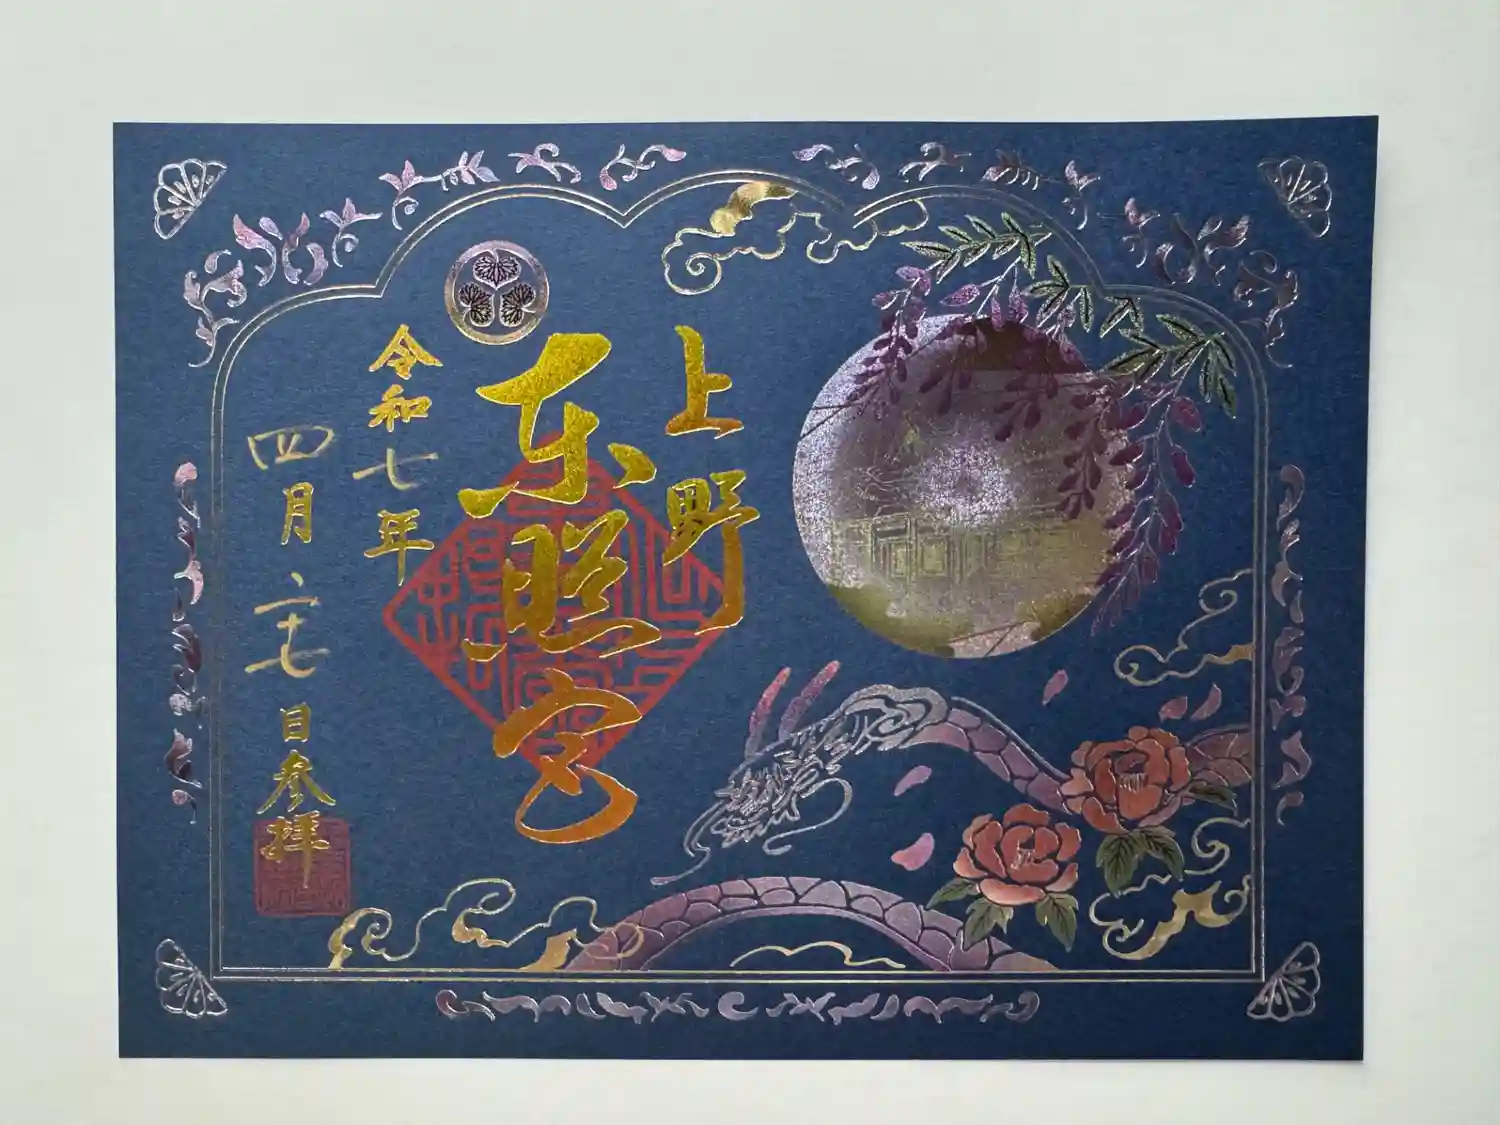 上野
东照宮
令和七年
四月二十七日参拝